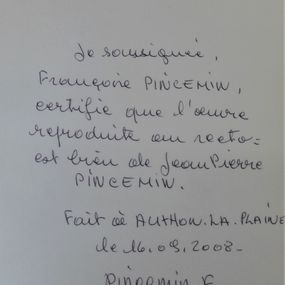 Je soussignée,
Françoise PINCEMIN,
certifie que l'œuvre
reproduite au recto=
est bien de Jean Pierre
PINCEMIN.
Fait à AUTHON.LA.PLAINE
le 16.09.2008-
Pincemin F